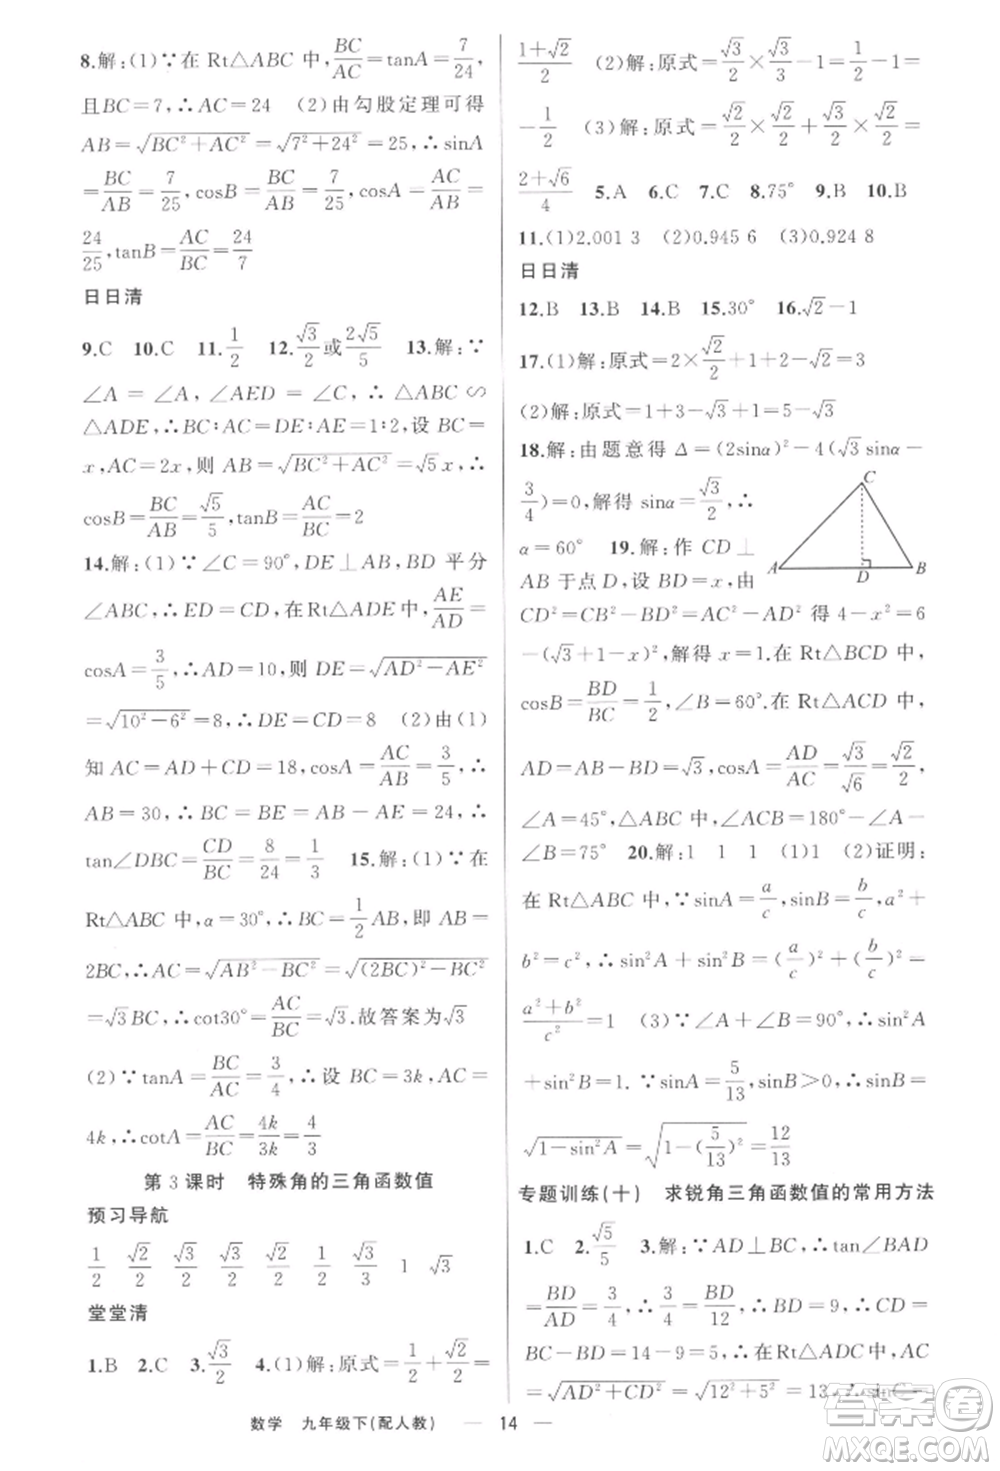 8.解:(1)∵在 Rt△ABC 中,BC/AC=tanA=7/24,
且BC=7,∴AC=24 (2)由勾股定理可得
AB=√(BC²+AC²)=√(7²+24²)=25,∴sinA
=BC/AB=7/25,cosB=BC/AB=7/25,cosA=AC/AB=
24/25,tanB=AC/BC=24/7
日日清
9.C 10.C 11.1/2 12.√3/2或2√5/5 13.解:∵
∠A=∠A,∠AED=∠C,∴△ABC∽
△ADE,∴BC:AC=DE:AE=1:2,设BC=
x,AC=2x,则AB=√(BC²+AC²)=√5x,∴
cosB=BC/AB=√5/5,tanB=AC/BC=2
14.解:(1)∵∠C=90°,DE⊥AB,BD平分
∠ABC,∴ED=CD,在Rt△ADE中,AE/AD=
cosA=3/5,∴AD=10,则DE=√(AD²-AE²)
=√(10²-6²)=8,∴DE=CD=8 (2)由(1)
知AC=AD+CD=18,cosA=AC/AB=3/5,∴
AB=30,∴BC=BE=AB-AE=24,∴
tan∠DBC=CD/BC=8/24=1/3 15.解:(1)∵在
Rt△ABC中,α=30°,∴BC=1/2AB,即AB=
2BC,∴AC=√(AB²-BC²)=√((2BC)²-BC²)
=√3BC,∴cot30°=AC/BC=√3.故答案为√3
(2)∵tanA=BC/AC=3/4,∴设BC=3k,AC=
4k,∴cotA=AC/BC=4k/3k=4/3
第3课时 特殊角的三角函数值
预习导航
1/2 √2/2 √3/2 √3/2 √2/2 1/2 √3/3 1 √3
堂堂清
1.B 2.C 3.√3/2 4.(1)解:原式=1/2+√2/2=
(1+√2)/2 (2)解:原式=√3/2×√3/3-1=1/2-1=
-1/2 (3)解:原式=√2/2×√2/2+√3/2×√2/2=
(2+√6)/4 5.A 6.C 7.C 8.75° 9.B 10.B
11.(1)2.001 3 (2)0.945 6 (3)0.924 8
日日清
12.B 13.B 14.B 15.30° 16.√2-1
17.(1)解:原式=2×√2/2+1+2-√2=3
(2)解:原式=1+3-√3+1=5-√3
18.解:由题意得 Δ=(2sinα)²-4(√3sinα-
3/4)=0,解得 sinα=√3/2,∴
α=60° 19.解:作CD⊥
AB于点D,设BD=x,由
C
A
D
B
CD²=CB²-BD²=AC²-AD²得4-x²=6
-(√3+1-x)²,解得x=1.在Rt△BCD中,
cosB=BD/BC=1/2,∠B=60°.在Rt△ACD中,
AD=AB-BD=√3,cosA=AD/AC=√3/√6=√2/2,
∠A=45°,△ABC中,∠ACB=180°-∠A-
∠B=75° 20.解:1 1 1 (1)1 (2)证明:
在Rt△ABC中,∵sinA=a/c,sinB=b/c,a²+
b²=c²,∴sin²A+sin²B=(a/c)²+(b/c)²=
(a²+b²)/c²=1 (3)∵∠A+∠B=90°,∴sin²A
+sin²B=1.∵sinA=5/13,sinB>0,∴sinB=
√(1-sin²A)=√(1-(5/13)²)=12/13
专题训练(十) 求锐角三角函数值的常用方法
1.C 2.√5/5 3.解:∵AD⊥BC,∴tan∠BAD
=BD/AD=3/4,∴3/4=BD/12,∴BD=9,∴CD=
BC-BD=14-9=5,∴在Rt△ADC中,AC=
√(AD²+CD²)=√(12²+5²)=13,∴
数学 九年级下(配人教) — 14 —
答案卷
MXQE.COM